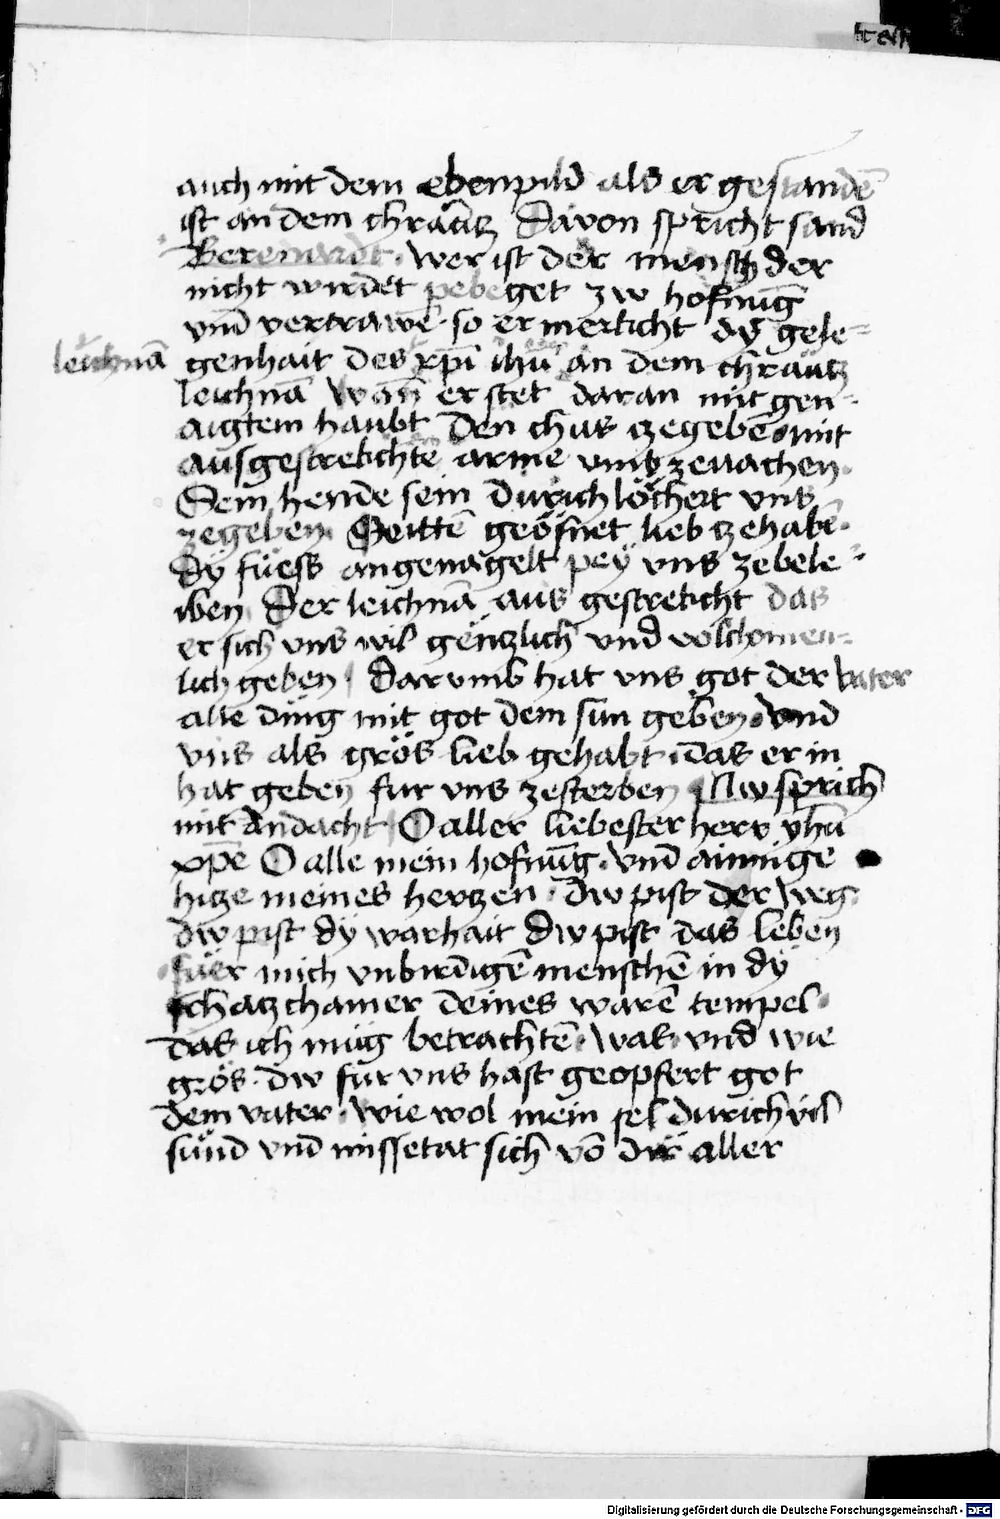 auch mit dem ebenpild als er gestandē
ist an dem chräūtz Davon spricht sand
Berenardt · wer ist der mensch der
nicht wirdet pebeget zw hofnūg
vnd vertrawē · so er merkcht dÿ gele-
leichnā
genhait des xp̄i ihū an dem chräutz
leichnā Wañ er stet daran mit gen-
aigtem haubt den chus czegebē mit
ausgestrekchtē arme vmbzevachen
Sein hende sein durichlöchert vns
zegeben Seittē geöfnet lieb czehabē
Dÿ füess angenagelt peÿ vns zebele-
iben Der leichnā aus gestrekcht das
er sich vns wil gëntzlich vnd volchomen-
lich geben Darumb hat vns got der vater
alle ding mit got dem sun geben vnd
vns als grös lieb gehabt · das er in
hat geben fur vns zesterben Nw sprich
mit andacht O aller liebester herr yhū
xp̄e O alle mein hofnūg · vnd ainige
hitze meines hertzen · dw pist der weg
dw pist dÿ warhait dw pist das leben
füer mich vnbirdigē menschē in dÿ
schatzchamer deines warē tempel
das ich müg betrachtē · was vnd wie
grös · dw für vns hast geopfert got
dem vater · wie wol mein sel durich vil
sünd vnd missetat sich vō dir aller
Digitalisierung gefördert durch die Deutsche Forschungsgemeinschaft - DFG